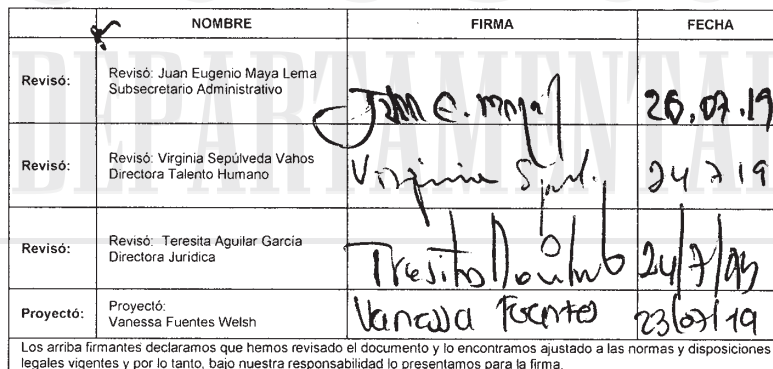 DEPARTAMENTAL
NOMBRE FIRMA FECHA
Revisó: Revisó: Juan Eugenio Maya Lema
Subsecretario Administrativo
Juan E. Maya L 26.07.19
Revisó: Revisó: Virginia Sepúlveda Vahos
Directora Talento Humano
Virginia Sepul. 24 7 19
Revisó: Revisó: Teresita Aguilar García
Directora Jurídica
Teresita Aguilar G 24/7/19
Proyectó: Proyectó:
Vanessa Fuentes Welsh
Vanessa Fuentes 23/07/19
Los arriba firmantes declaramos que hemos revisado el documento y lo encontramos ajustado a las normas y disposiciones
legales vigentes y por lo tanto, bajo nuestra responsabilidad lo presentamos para la firma.